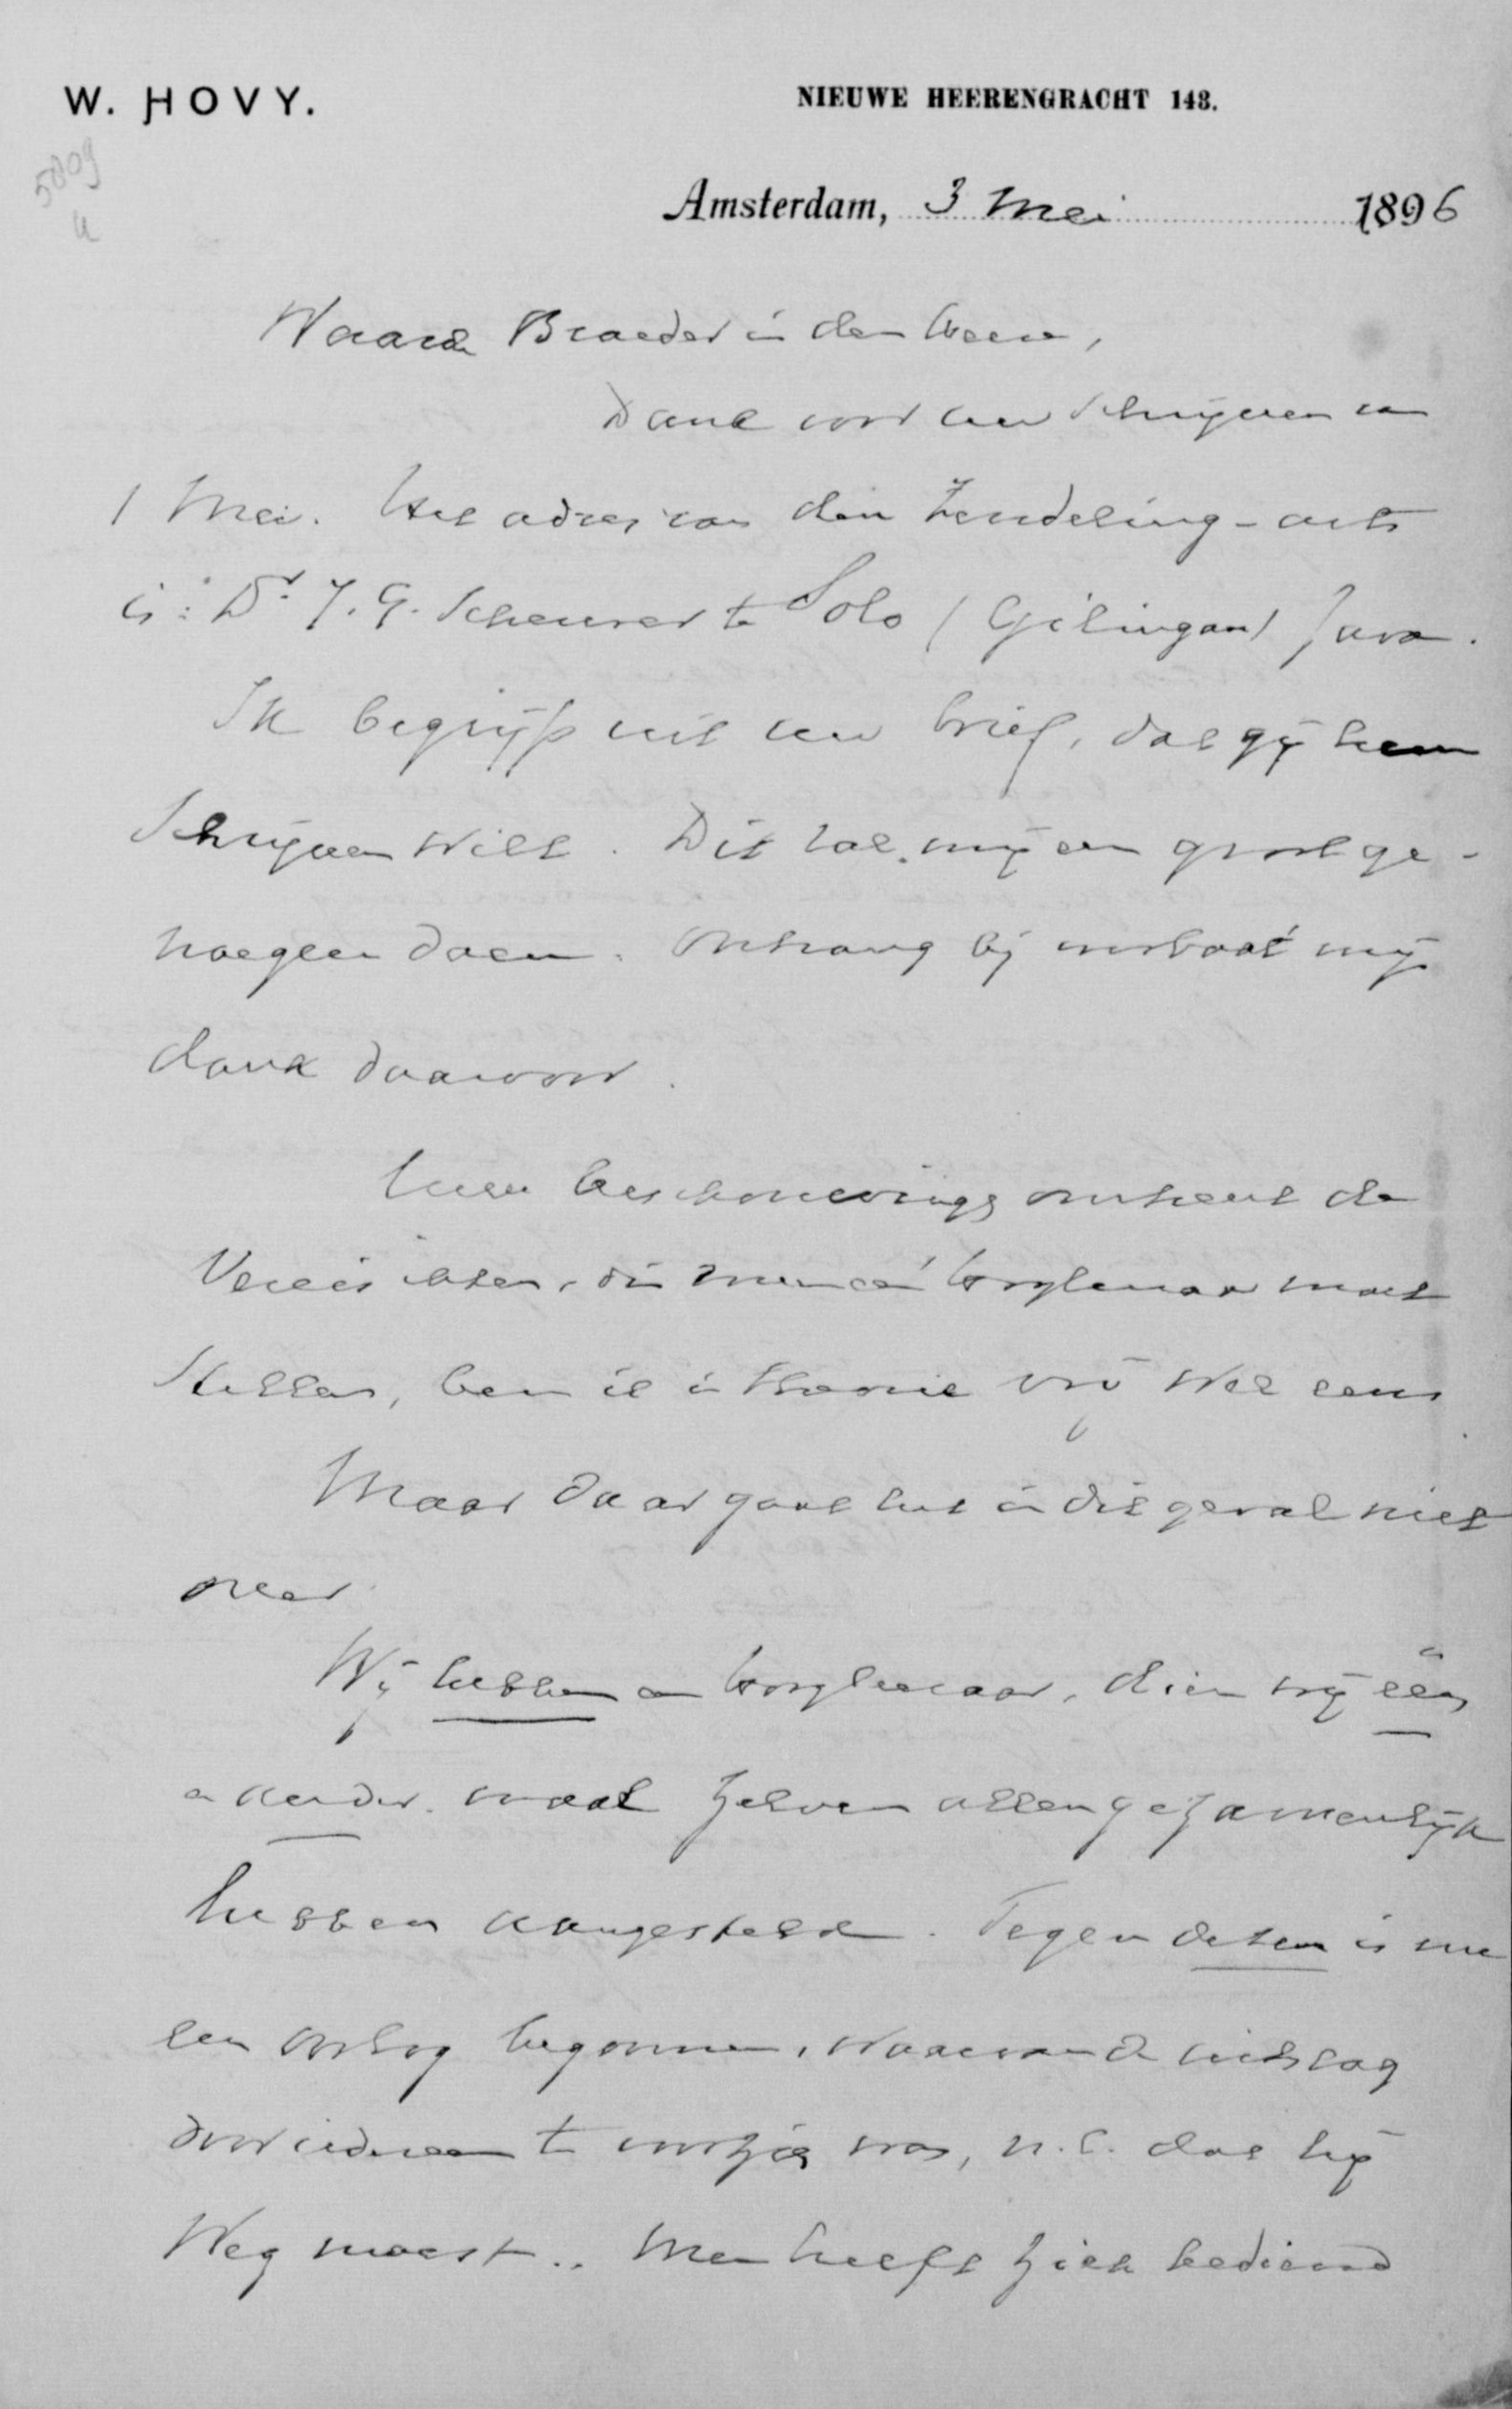 W. HOVY.
NIEUWE HEERENGRACHT 143.
5809
a
Amsterdam, 3 Mei 1896
Waarde Broeder in den Heere,
Dank voor uw schrijven van
1 Mei. Het adres van den Zendeling-arts
is: Dr. J. G. Scheurer te Solo (Gilingan) Java.
Ik begrijp uit uw brief, dat gij hem
schrijven wilt. Dit zal mij een groot ge-
noegen doen. Ontvang bij voorbaat mijn
dank daarvoor.
Uwe beschouwingen omtrent de
Vereischten, die men een hoogleeraar moet
stellen, ben ik in theorie vrij wel eens
Maar daar gaat het in dit geval niet
over.
Wij hebben een hoogleeraar, dien wij één
en ander maal zelven allen gezamenlijk
hebben aangesteld. Tegen dezen is nu
een oorlog begonnen, waarvan de uitslag
door iedereen te voorzien was, n.l. dat hij
Weg moest.. Men heeft zich bediend